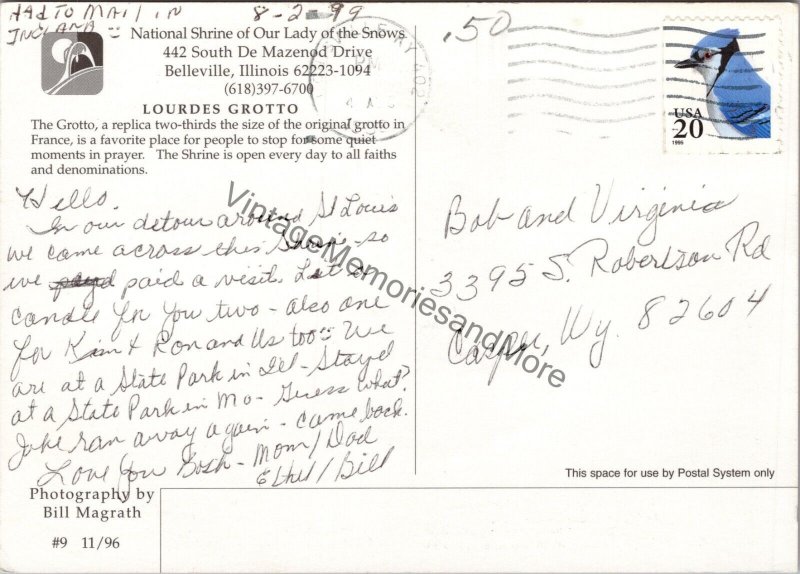 HAD TO MAIL IN 8-2-99
INDIANA
National Shrine of Our Lady of the Snows
442 South De Mazenod Drive
Belleville, Illinois 62223-1094
(618)397-6700
LOURDES GROTTO
The Grotto, a replica two-thirds the size of the original grotto in
France, is a favorite place for people to stop for some quiet
moments in prayer. The Shrine is open every day to all faiths
and denominations.
Hello.
In our detour around St Louis
we came across this Shrine - so
we paid a visit. Lit a
candle for you two - also one
for Kim & Ron and Us too. We
are at a State Park in Ill - Stayed
at a State Park in Mo - Guess what?
Jake ran away again - came back.
Love You Both - Mom/Dad
Ethel/Bill
Photography by
Bill Magrath
#9 11/96
.50
PM
USA
20
1995
Bob and Virginia
3395 S. Robertson Rd
Casper, Wy. 82604
This space for use by Postal System only
VintageMemoriesandMore